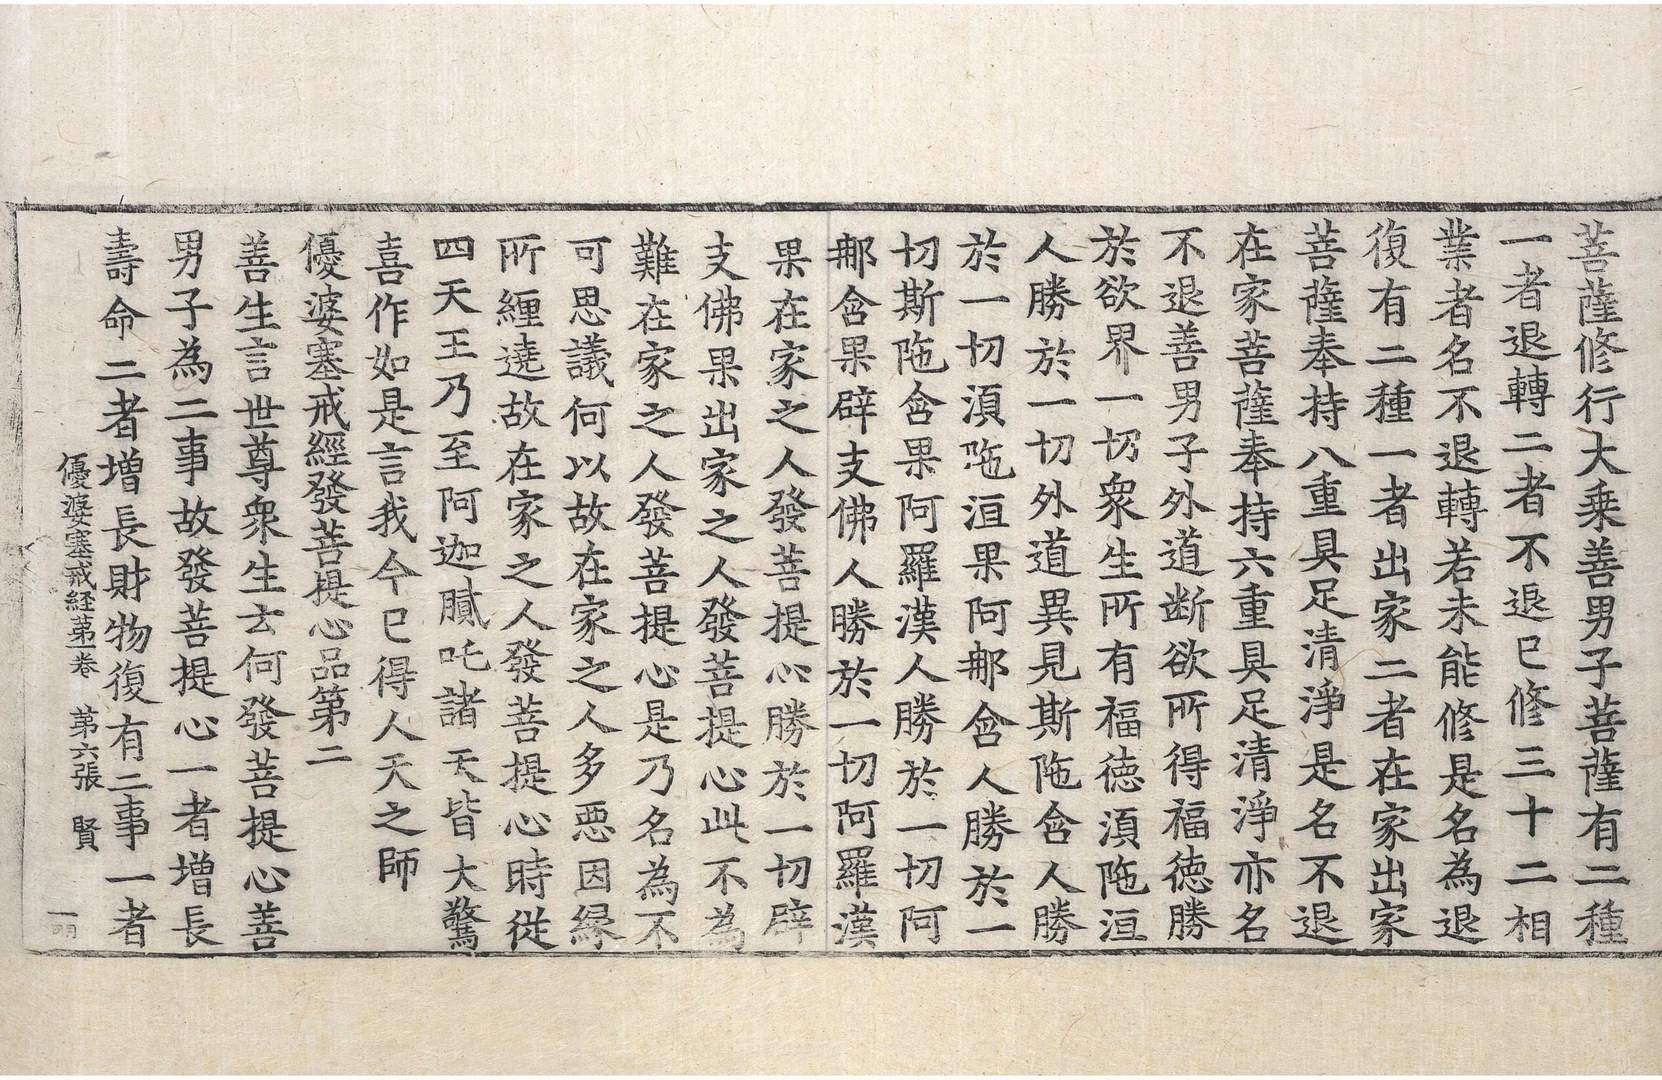 菩薩修行大乗善男子菩薩有二種
一者退轉二者不退已修三十二相
業者名不退轉若未能修是名為退
復有二種一者出家二者在家出家
菩薩奉持八重具足清淨是名不退
在家菩薩奉持六重具足清淨亦名
不退善男子外道断欲所得福徳勝
於欲界一切衆生所有福徳湏陁洹
人勝於一切外道異見斯陁含人勝
於一切湏陁洹果阿那含人勝於一
切斯陁含果阿羅漢人勝於一切阿
那含果辟支佛人勝於一切阿羅漢
果在家之人發菩提心勝於一切辟
支佛果出家之人發菩提心此不為
難在家之人發菩提心是乃名為不
可思議何以故在家之人多惡因縁
所纏遶故在家之人發菩提心時從
四天王乃至阿迦膩吒諸天皆大驚
喜作如是言我今已得人天之師
優婆塞戒經發菩提心品第二
善生言世尊衆生云何發菩提心善
男子為二事故發菩提心一者増長
壽命二者増長財物復有二事一者
優婆塞戒経第一卷 第六張 賢